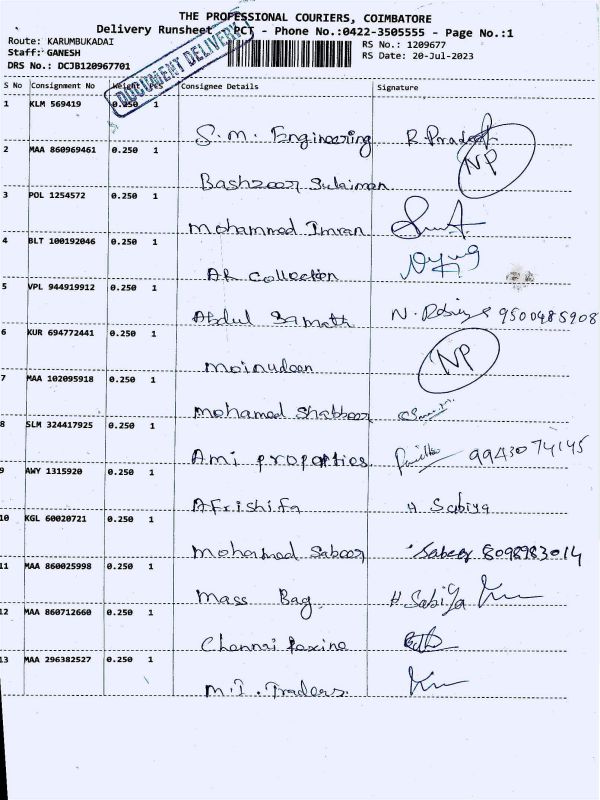 THE PROFESSIONAL COURIERS, COIMBATORE
Delivery Runsheet PCT - Phone No.:0422-3505555 - Page No.:1
Route: KARUMBUKADAI
Staff: GANESH
DRS No.: DCJB120967701
RS No.: 1209677
RS Date: 20-Jul-2023
DOCUMENT DELIVERY
S No Consignment No Weight Pcs Consignee Details Signature
1 KLM 569419 0.250 1
S.M. Engineering R. Pradeep
2 MAA 860969461 0.250 1 NP
Basheer Sulaiman
3 POL 1254572 0.250 1
Mohammed Imran
4 BLT 100192046 0.250 1
AR Collection
5 VPL 944919912 0.250 1
Abdul Samath N. 9500485908
6 KUR 694772441 0.250 1 NP
Moinudeen
7 MAA 102095918 0.250 1
Mohamed Shabbeer
8 SLM 324417925 0.250 1
Ami properties 9943074145
9 AWY 1315920 0.250 1
Afrishifa H. Sabiya
10 KGL 60020721 0.250 1
Mohamed Sabeer Sabeer 8098983014
11 MAA 860025998 0.250 1
Mass Bag H. Sabiya
12 MAA 860712660 0.250 1
Chennai
13 MAA 296382527 0.250 1
M.I. Traders